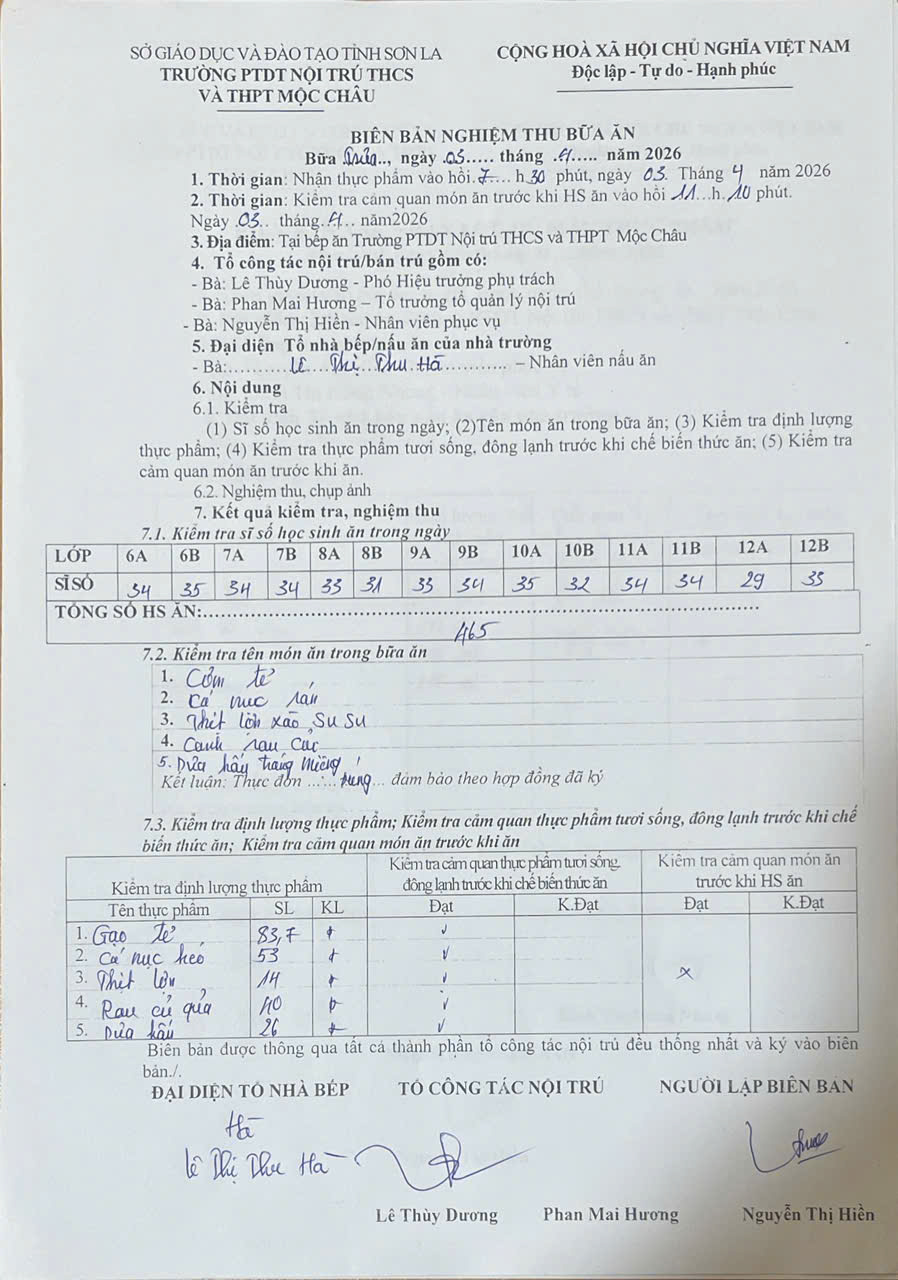 SỞ GIÁO DỤC VÀ ĐÀO TẠO TỈNH SƠN LA
TRƯỜNG PTDT NỘI TRÚ THCS
VÀ THPT MỘC CHÂU
CỘNG HOÀ XÃ HỘI CHỦ NGHĨA VIỆT NAM
Độc lập - Tự do - Hạnh phúc
BIÊN BẢN NGHIỆM THU BỮA ĂN
Bữa trưa.., ngày .03..... tháng .4..... năm 2026
1. Thời gian: Nhận thực phẩm vào hồi.7.... h30 phút, ngày 03. Tháng 4 năm 2026
2. Thời gian: Kiểm tra cảm quan món ăn trước khi HS ăn vào hồi 11...h.10 phút.
Ngày .03.. tháng.4... năm2026
3. Địa điểm: Tại bếp ăn Trường PTDT Nội trú THCS và THPT Mộc Châu
4. Tổ công tác nội trú/bán trú gồm có:
- Bà: Lê Thùy Dương - Phó Hiệu trưởng phụ trách
- Bà: Phan Mai Hương – Tổ trưởng tổ quản lý nội trú
- Bà: Nguyễn Thị Hiền - Nhân viên phục vụ
5. Đại diện Tổ nhà bếp/nấu ăn của nhà trường
- Bà:.......... Lê.... Thị.. Thu Hà............ – Nhân viên nấu ăn
6. Nội dung
6.1. Kiểm tra
(1) Sĩ số học sinh ăn trong ngày; (2)Tên món ăn trong bữa ăn; (3) Kiểm tra định lượng
thực phẩm; (4) Kiểm tra thực phẩm tươi sống, đông lạnh trước khi chế biến thức ăn; (5) Kiểm tra
cảm quan món ăn trước khi ăn.
6.2. Nghiệm thu, chụp ảnh
7. Kết quả kiểm tra, nghiệm thu
7.1. Kiểm tra sĩ số học sinh ăn trong ngày
LỚP 6A 6B 7A 7B 8A 8B 9A 9B 10A 10B 11A 11B 12A 12B
SĨ SỐ 34 35 34 34 33 31 33 34 35 32 34 34 29 33
TỔNG SỐ HS ĂN:..........
465
7.2. Kiểm tra tên món ăn trong bữa ăn
1. Cơm tẻ
2. Cá nục rán
3. Thịt lợn xào Su Su
4. Canh rau cải
5. Dưa hấu tráng miệng
Kết luận: Thực đơn ...... đúng... đảm bảo theo hợp đồng đã ký
7.3. Kiểm tra định lượng thực phẩm; Kiểm tra cảm quan thực phẩm tươi sống, đông lạnh trước khi chế
biến thức ăn; Kiểm tra cảm quan món ăn trước khi ăn
Kiểm tra định lượng thực phẩm
Kiểm tra cảm quan thực phẩm tươi sống,
đông lạnh trước khi chế biến thức ăn
Kiểm tra cảm quan món ăn
trước khi HS ăn
Tên thực phẩm SL KL Đạt K.Đạt Đạt K.Đạt
1. Gạo tẻ 83,7 + ✓
2. Cá nục héo 53 + ✓
3. Thịt lợn 14 + ✓ x
4. Rau củ quả 40 + ✓
5. Dưa hấu 26 + ✓
Biên bản được thông qua tất cả thành phần tổ công tác nội trú đều thống nhất và ký vào biên
bản./.
ĐẠI DIỆN TỔ NHÀ BẾP TỔ CÔNG TÁC NỘI TRÚ NGƯỜI LẬP BIÊN BẢN
Hà
Lê Thị Thu Hà
Lê Thùy Dương Phan Mai Hương Nguyễn Thị Hiền